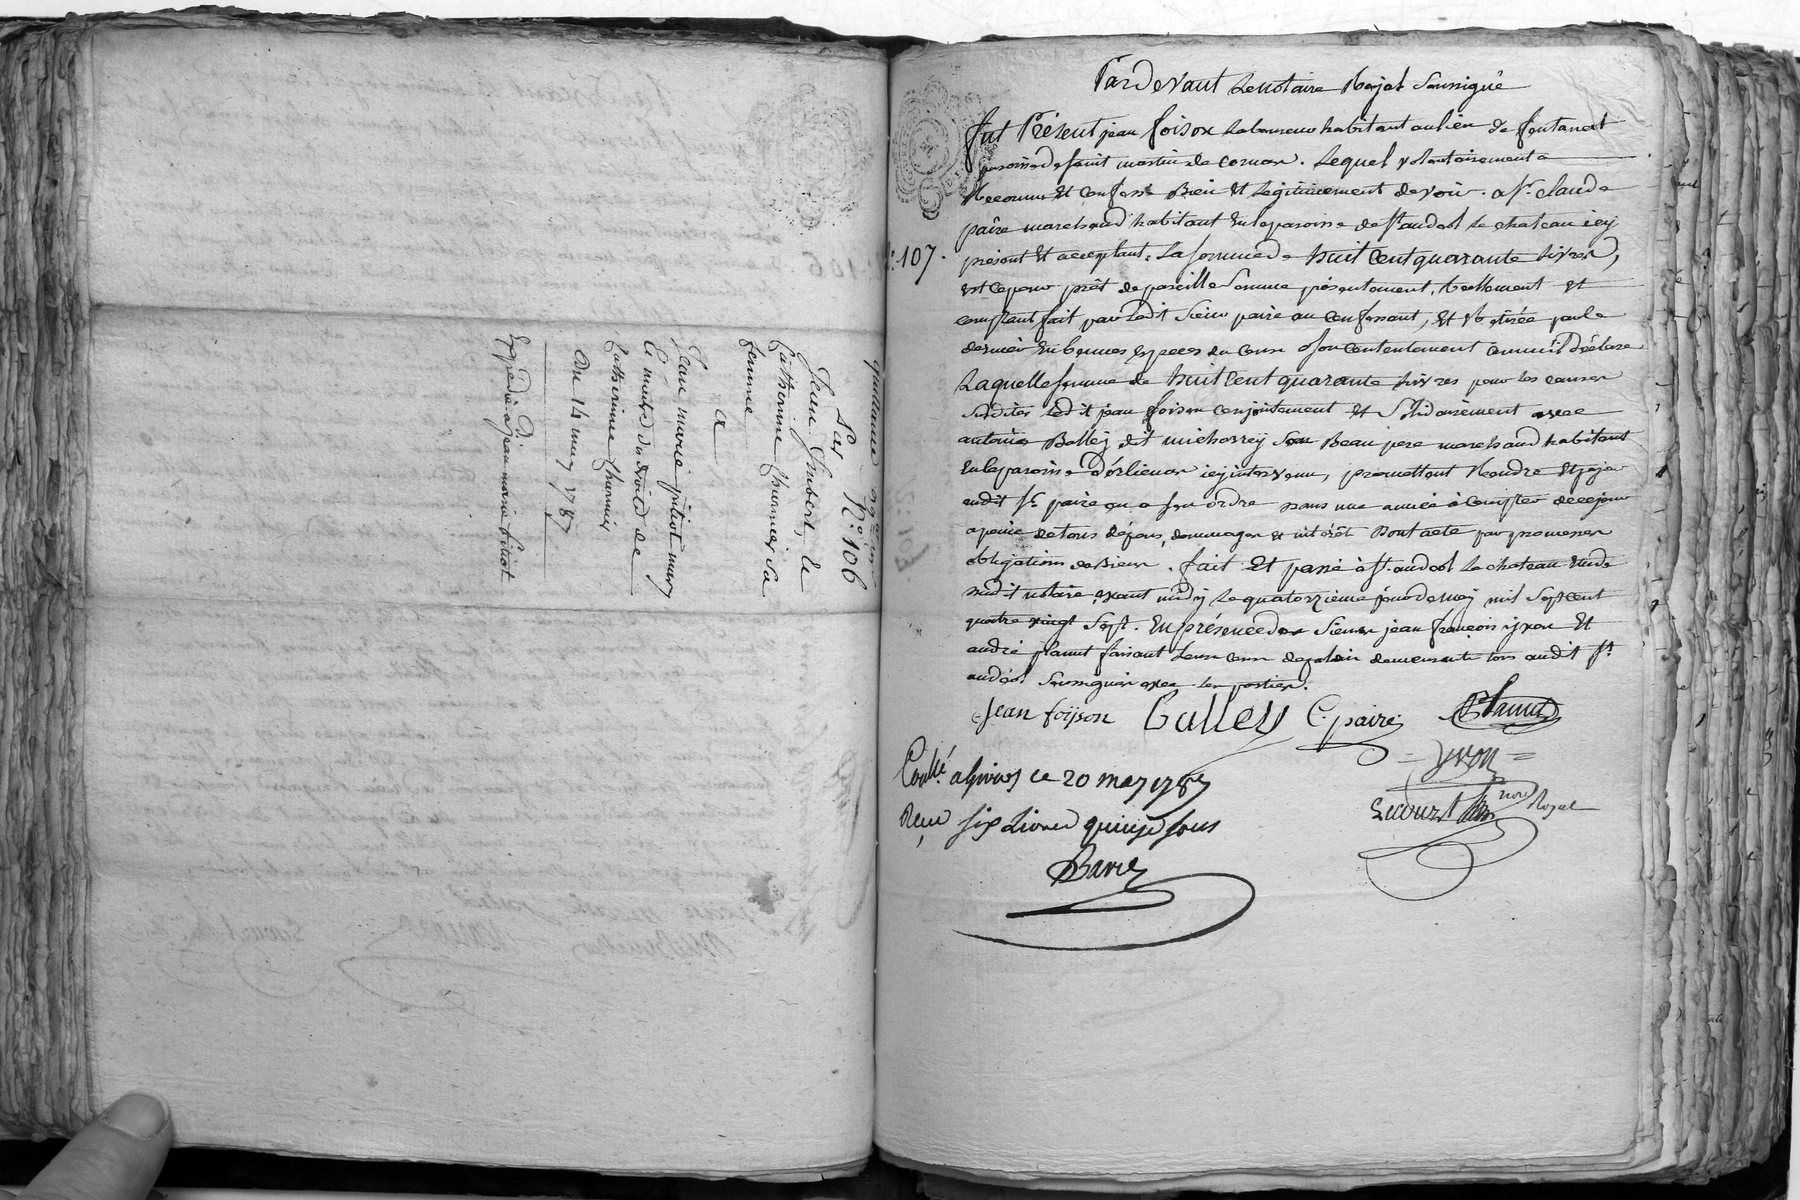 quittance
Par N.° 106
Jean Jimbert, le
Catherine thunnier sa
femme
a
Jean marie pitiot mary
Et maitre du droits de
Catherinne thunnier
Du 14 may 1787
Expedié a jean marie pitiot
Pardevant Le notaire Royal Soussigné
N.° 107.
fut Présent jean foison Laboureur habitant au lieu de fontanat
paroisse de saint martin de cornas. Lequel volontairement a
Reconnu Et Confessé Bien Et Légitimement devoir a Sr. claude
paire marchand habitant En la paroisse de St. andeol Le chateau icy
présent Et acceptant. La somme de huit Cent quarante Livres,
Est Ce pour prêt de pareille Somme présentement, Reellement et
comptant fait par Ledit Sieur paire au Confessant, Et Retirée par le
dernier En bonnes Especes du Cours a son contentement comme il déclare
Laquelle somme de huit Cent quarante Livres pour les causes
Susdites Ledit jean foison conjointement Et Solidairement avec
antoine Balley dit michorrey Son Beau pere marchand habitant
En la paroisse d'orlienas icy intervenu, promettent Rendre Et payer
audit Sr. paire ou a son ordre dans une année à Compter de ce jour
a peine de tous dépens, dommages et intérêt Dont acte par promesses
obligations de Biens. fait Et passé à St. andeol Le chateau Etude
dudit notaire avant midy Le quatorzieme jour de may mil Sept cent
quatre vingt Sept. En présence de Sieur jean françois yvon Et
andré flamet faisant Leur Cour de palais demeurants tous audit St.
andéol Soussignés avec les parties.
Jean foïson Balley C. paire flamet
yvon
Lecourt
nore Royal
Conllé a Givors ce 20 may 1787
Reçu six Livres quinze sous
Barie